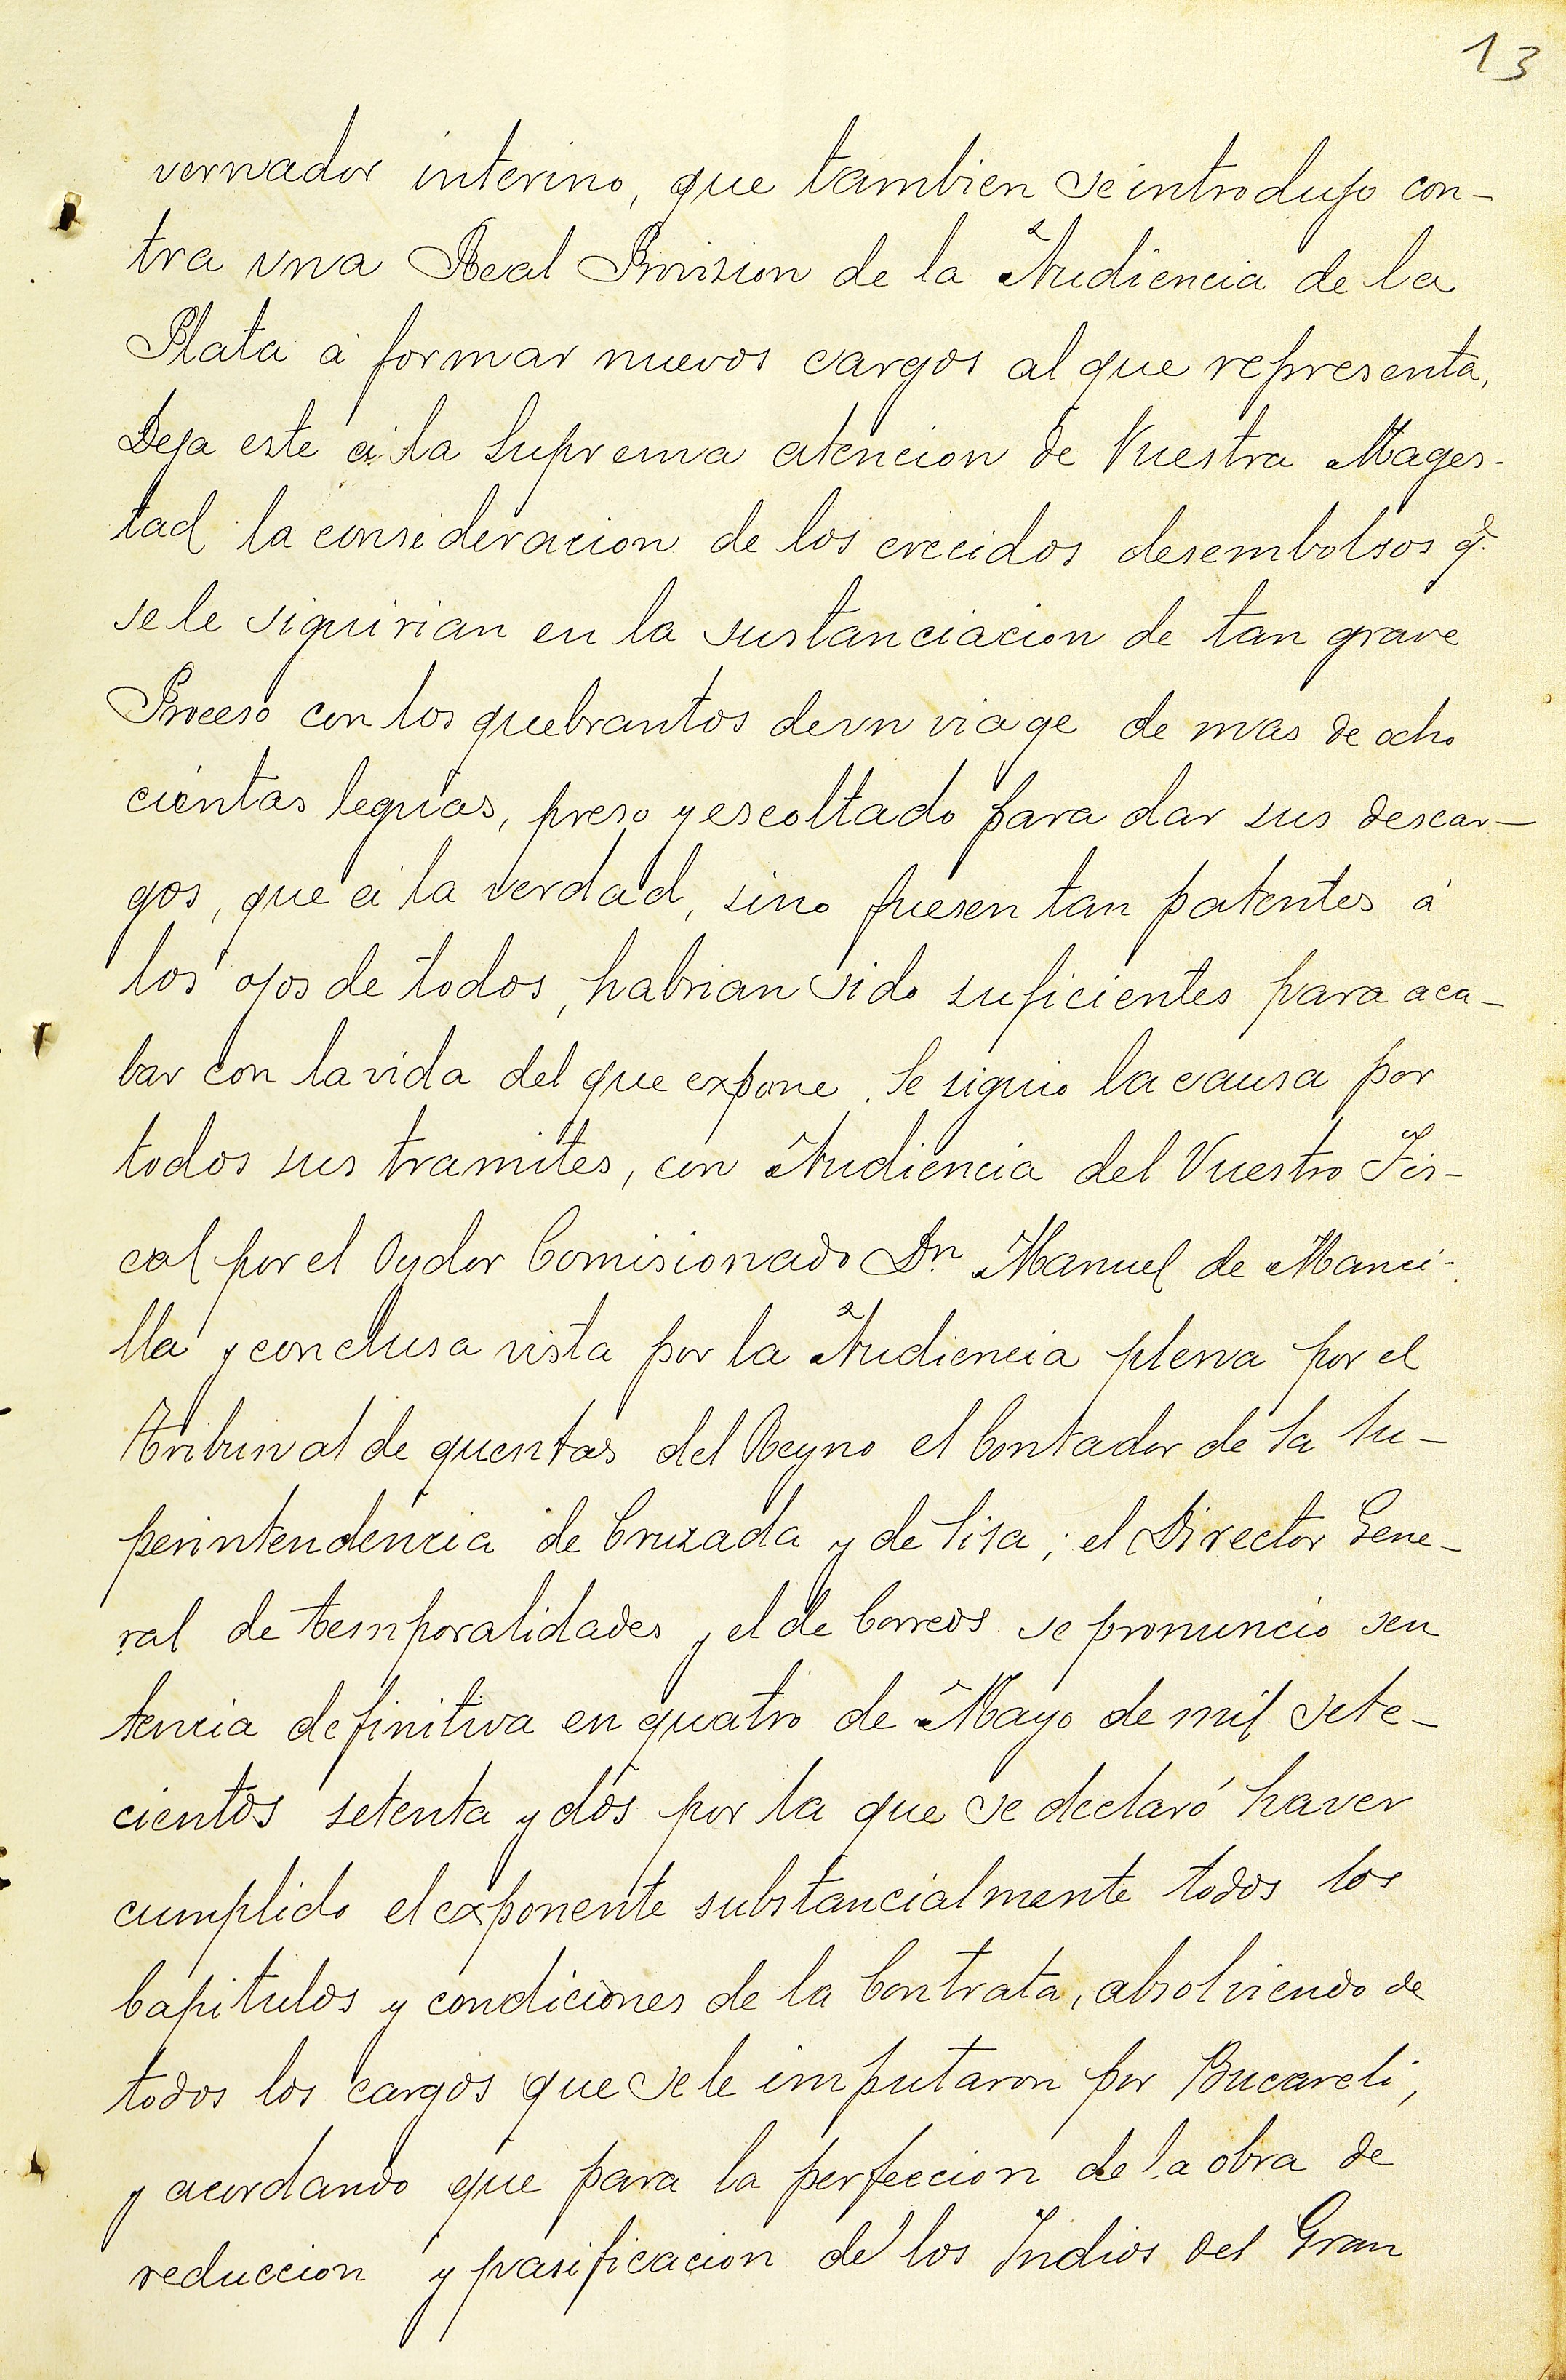 13
vernador interino, que tambien se introdujo con-
tra una Real Provision de la Audiencia de la
Plata á formar nuevos cargos al que representa,
Deja este á la Suprema atencion de Vuestra Mages-
tad la consideracion de los crecidos desembolsos q.e
se le siguirian en la sustanciacion de tan grave
Proceso con los quebrantos de un viage de mas de ocho
cientas leguas, preso y escoltado para dar sus descar-
gos, que á la verdad, sino fuesen tan patentes á
los ojos de todos, habrian sido suficientes para aca-
bar con la vida del que expone. Se siguio la causa por
todos sus tramites, con Audiencia del Vuestro Fis-
cal por el Oydor Comisionado Dn Manuel de Manci-
lla y conclusa vista por la Audiencia plena por el
Tribunal de quentas del Reyno el Contador de la Su-
perintendencia de Cruzada y de Sisa; el Director Gene-
ral de temporalidades y el de Correos se pronuncio sen
tencia definitiva en quatro de Mayo de mil sete-
cientos setenta y dos por la que se declaró haver
cumplido el exponente substancialmente todos los
Capitulos y condiciones de la Contrata, absolviendo de
todos los cargos que se le imputaron por Bucareli,
y acordando que para la perfeccion de la obra de
reduccion y pasificacion de los Indios del Gran